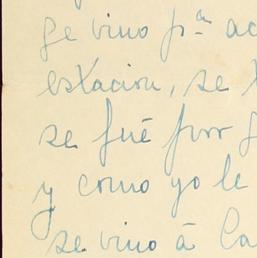 ge vino pª ac
estacion, se
se fué por g
y como yo le
se vino á Ca